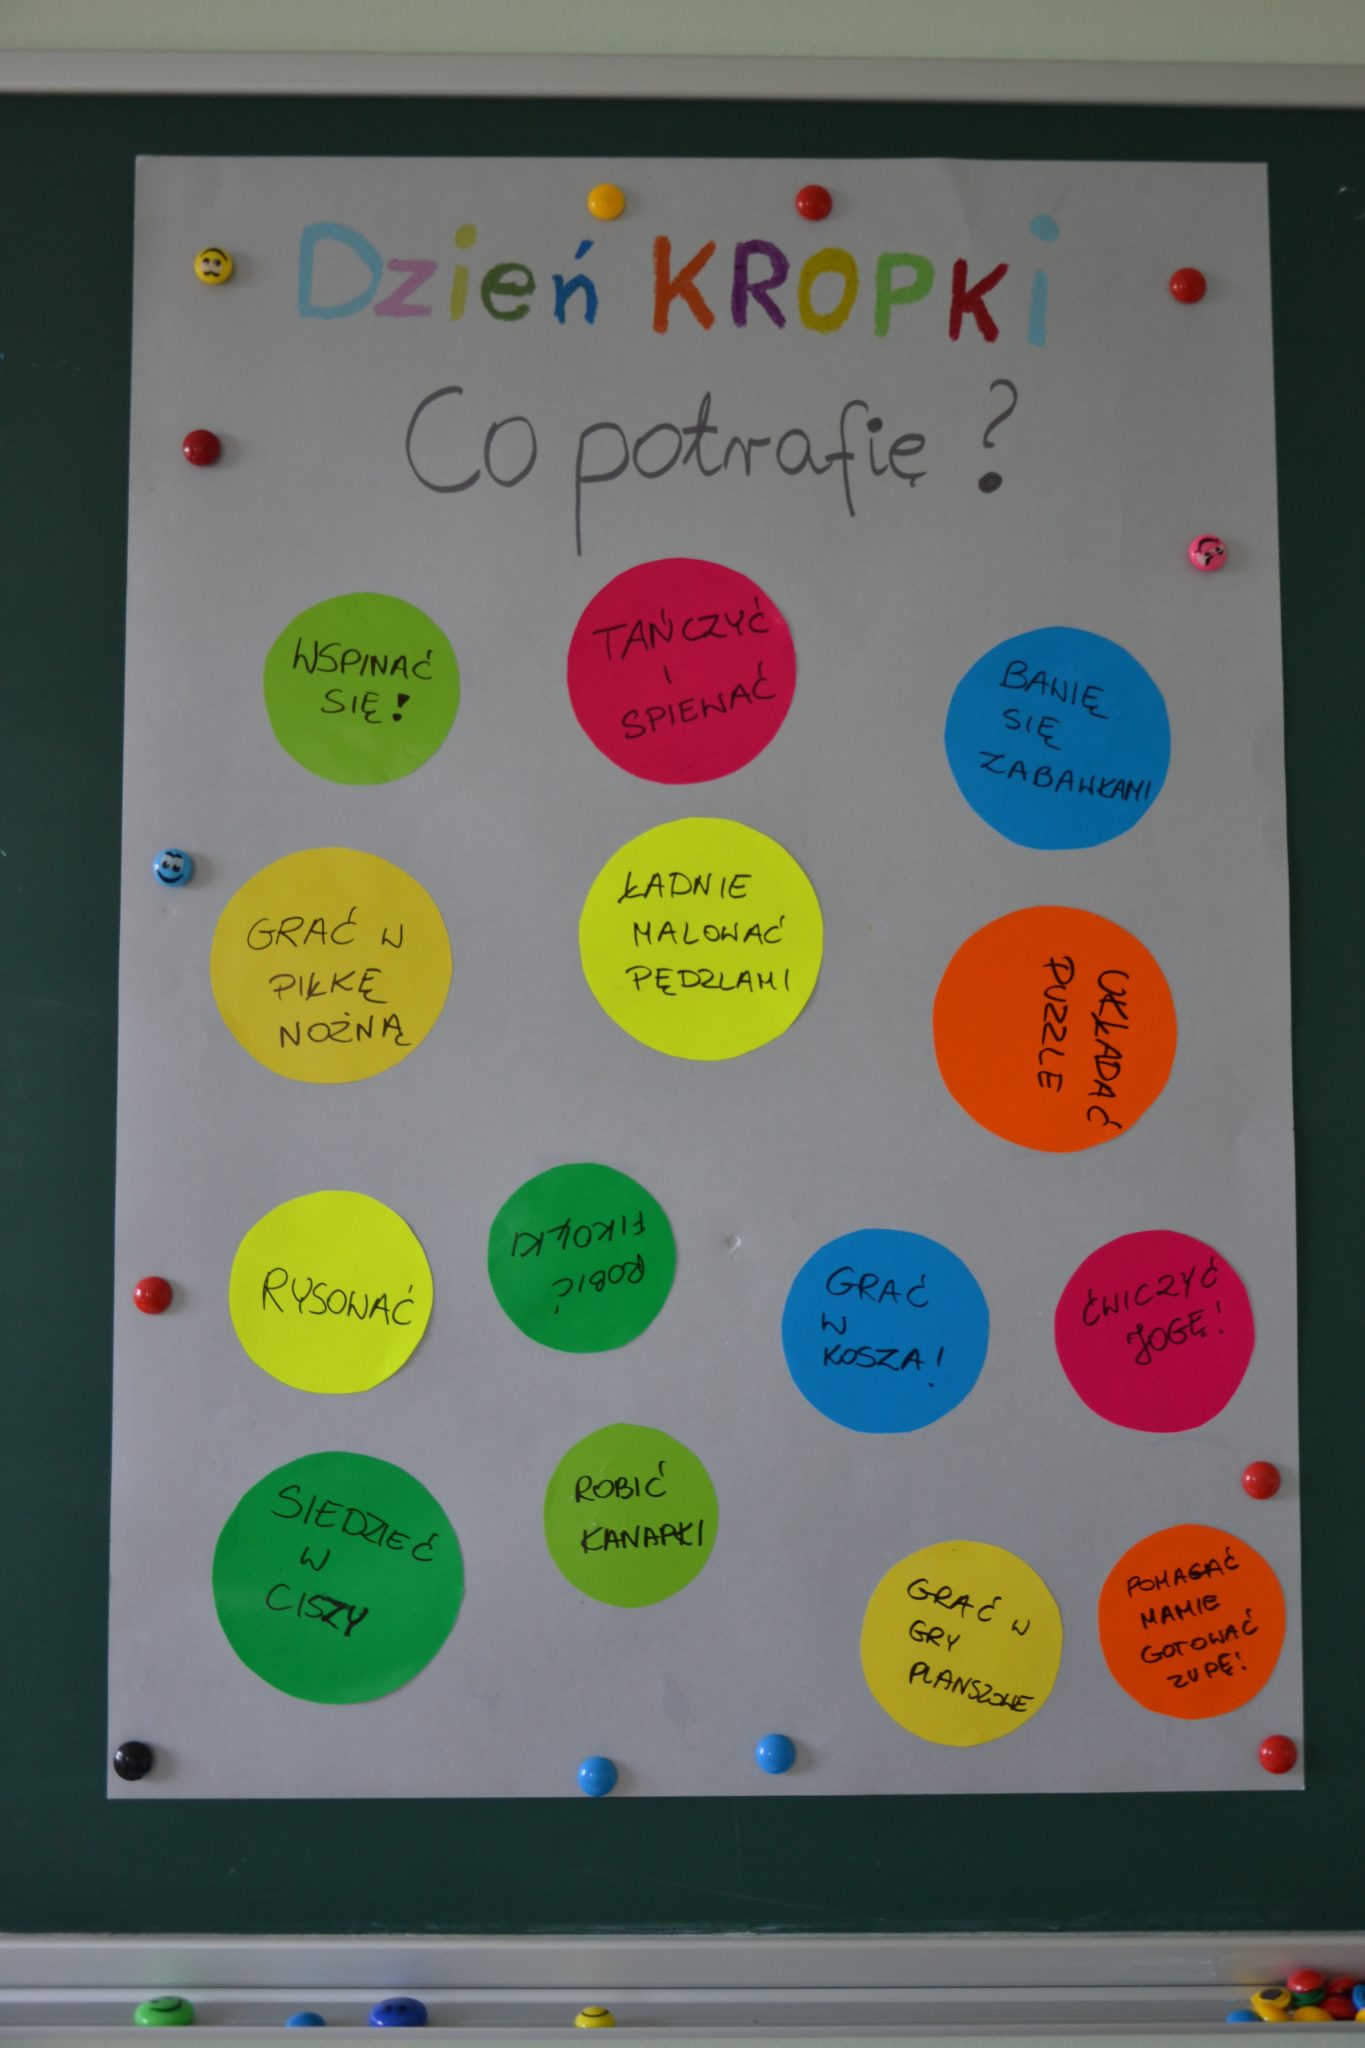 Dzień KROPKI
Co potrafię?
WSPINAĆ
SIĘ!
TAŃCZYĆ
I
SPIEWAĆ
BAWIĘ
SIĘ
ZABAWKAMI
GRAĆ W
PIŁKĘ
NOŻNĄ
ŁADNIE
MALOWAĆ
PĘDZLAMI
UKŁADAĆ
PUZZLE
RYSOWAĆ
ROBIĆ
FIKOŁKI
GRAĆ
W
KOSZA!
ĆWICZYĆ
JOGĘ!
SIEDZIEĆ
W
CISZY
ROBIĆ
KANAPKI
GRAĆ W
GRY
PLANSZOWE
POMAGAĆ
MAMIE
GOTOWAĆ
ZUPĘ!